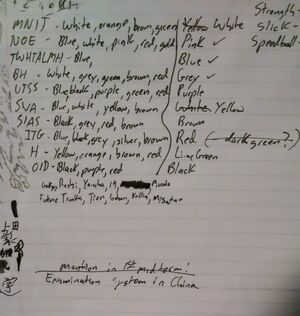 Strength-
MNIT - White, orange, brown, green Yellow White Slick-
NOE - Blue, white, pink, red, gold Pink ✓ Speedball-
TWHTALMH - Blue, Blue ✓
BH - White, grey, green, brown, red Grey ✓
UTSS - Blue, black, purple, green, red Purple
SWA - Blue, white, yellow, brown White Yellow
SIAS - Black, grey, red, brown Brown
ITG - Blue, black, grey, silver, brown Red (dark green?)
H - Yellow, orange, brown, red Lime Green
OID - Black, purple, red Black
Goku, Roshi, Yamcha, 19, Piccolo
Future Trunks, Tien, Gohan, Krillin,
mention in 1st midterm:
Examination system in China